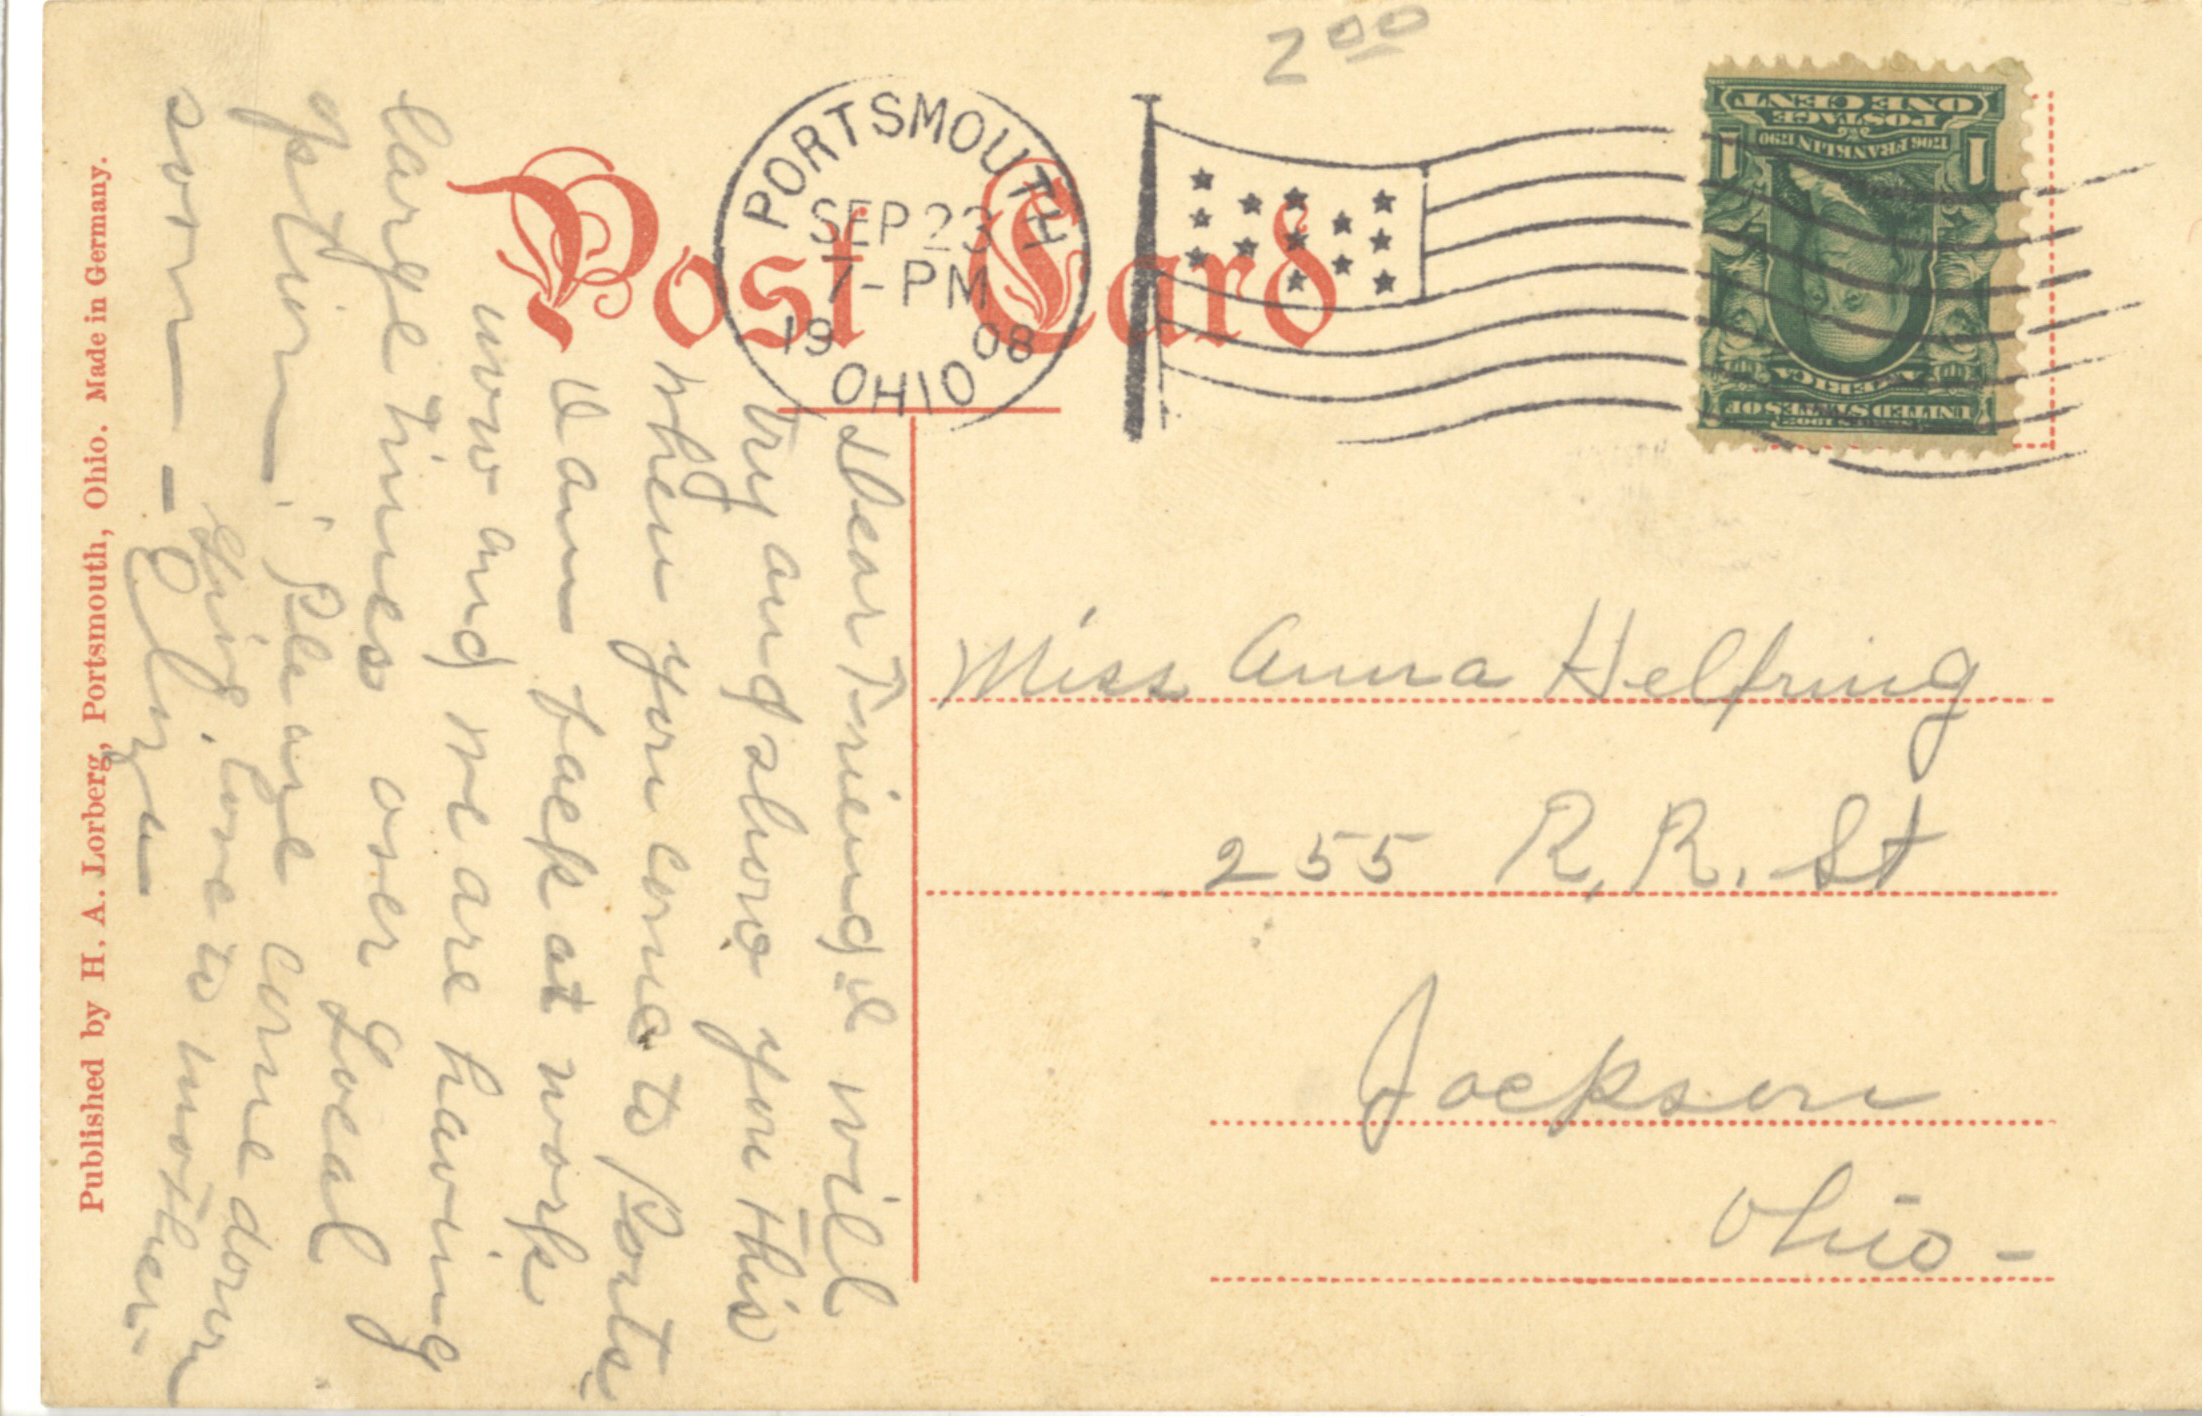 2 00
PORTSMOUTH
SEP 23
7-PM
1908
OHIO
Post Card
ONE CENT
POSTAGE
1706 FRANKLIN 1790
1 1
SERIES 1902
UNITED STATES OF
AMERICA
Dear Friend I will
try and show you this
when you come to Ports.
I am back at work
now and we are having
large times over Local
option. Please come down
soon - Give love to mother.
Miss Anna Helfring
255 R.R. St
Jackson
Ohio -
Published by H. A. Lorberg, Portsmouth, Ohio. Made in Germany.